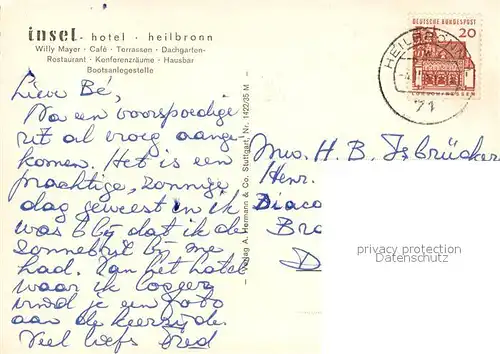 insel - hotel · heilbronn
Willy Mayer · Café · Terrassen · Dachgarten-
Restaurant · Konferenzräume · Hausbar
Bootsanlegestelle
DEUTSCHE BUNDESPOST
20
LORSCH/HESSEN
HEILBRONN
71
Lieve Bé,
Na een voorspoedige
rit al vroeg aange-
komen. Het is een
prachtige, zonnige
dag geweest en ik
was blij dat ik de
zonnebril bij me
had. Van het hotel
waar ik logeer
vind je een foto
aan de keerzijde.
Veel liefs Fred
Verlag A. Hermann & Co. Stuttgart, Nr. 1422/35 M
Mw. H. B. IJsbrücker
Henr.
Diaco
Bro
D
privacy protection
Datenschutz